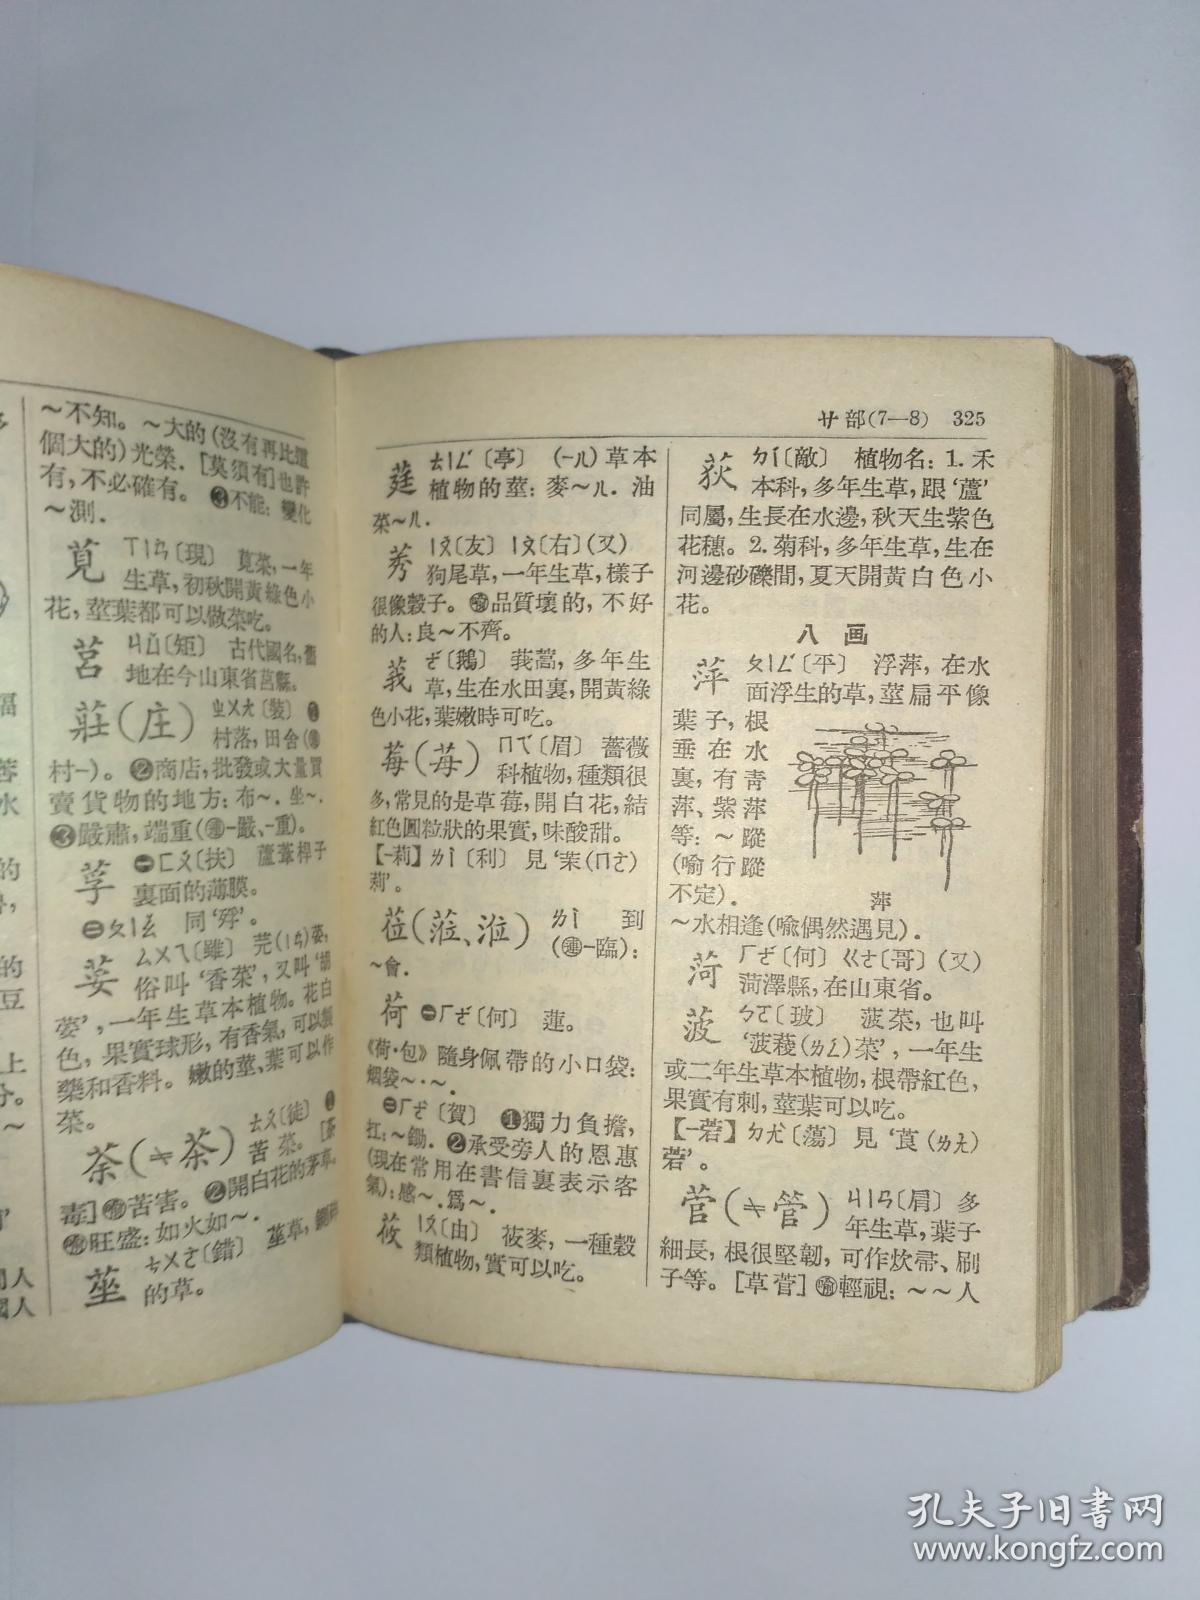 ~不知。~大的(沒有再比這
個大的)光榮.[莫須有]也許
有,不必確有。❸不能:變化
~測.
莧 ㄒㄧㄢˋ〔現〕 莧菜,一年
生草,初秋開黃綠色小
花,莖葉都可以做菜吃。
莒 ㄐㄩˇ〔矩〕 古代國名,舊
地在今山東省莒縣。
莊(庄) ㄓㄨㄤ〔裝〕 ❶
村落,田舍(㊣
村-)。❷商店,批發或大量買
賣貨物的地方:布~.坐~.
❸嚴肅,端重(連-嚴、-重)。
莩 ㊀ㄈㄨˊ〔扶〕 蘆葦桿子
裏面的薄膜。
㊁ㄆㄧㄠˇ 同‘殍’。
荽 ㄙㄨㄟ〔雖〕 芫(ㄧㄢˊ)荽,
俗叫‘香菜’,又叫‘胡
荽’,一年生草本植物。花白
色,果實球形,有香氣,可以製
藥和香料。嫩的莖、葉可以作
菜。
荼(≒茶) ㄊㄨˊ〔徒〕 ❶
苦菜.[荼
毒]喻苦害。❷開白花的茅草.
喻旺盛:如火如~.
莝 ㄘㄨㄛˋ〔錯〕 莝草,鍘碎
的草。
艹部(7—8) 325
莛 ㄊㄧㄥˊ〔亭〕 (-ㄦ)草本
植物的莖:麥~ㄦ.油
菜~ㄦ.
莠 ㄧㄡˇ〔友〕ㄧㄡˋ〔右〕(又)
狗尾草,一年生草,樣子
很像穀子。喻品質壞的,不好
的人:良~不齊。
莪 ㄜˊ〔鵝〕 莪蒿,多年生
草,生在水田裏,開黃綠
色小花,葉嫩時可吃。
莓(苺) ㄇㄟˊ〔眉〕 薔薇
科植物,種類很
多,常見的是草莓,開白花,結
紅色圓粒狀的果實,味酸甜。
【-莉】ㄌㄧˋ〔利〕見‘茉(ㄇㄛˋ)
莉’。
莅(蒞、涖) ㄌㄧˋ 到
(連-臨):
~會.
荷 ㊀ㄏㄜˊ〔何〕 蓮。
《荷·包》隨身佩帶的小口袋:
烟袋~·~.
㊁ㄏㄜˋ〔賀〕 ❶獨力負擔,
扛:~鋤.❷承受旁人的恩惠
(現在常用在書信裏表示客
氣):感~.爲~.
莜 ㄧㄡˊ〔由〕 莜麥,一種穀
類植物,實可以吃。
荻 ㄉㄧˊ〔敵〕 植物名:1.禾
本科,多年生草,跟‘蘆’
同屬,生長在水邊,秋天生紫色
花穗。2.菊科,多年生草,生在
河邊砂礫間,夏天開黃白色小
花。
八画
萍 ㄆㄧㄥˊ〔平〕 浮萍,在水
面浮生的草,莖扁平像
葉子,根
垂在水
裏,有青
萍、紫萍
等:~蹤
(喻行蹤
不定).
萍
~水相逢(喻偶然遇見).
菏 ㄏㄜˊ〔何〕ㄍㄜ〔哥〕(又)
菏澤縣,在山東省。
菠 ㄅㄛ〔玻〕 菠菜,也叫
‘菠薐(ㄌㄥˊ)菜’,一年生
或二年生草本植物,根帶紅色,
果實有刺,莖葉可以吃。
【-菪】ㄉㄤˋ〔蕩〕見‘莨(ㄌㄤˋ)
菪’。
菅(≒管) ㄐㄧㄢ〔肩〕多
年生草,葉子
細長,根很堅韌,可作炊帚、刷
子等。[草菅]喻輕視:~~人
孔夫子旧书网
www.kongfz.com